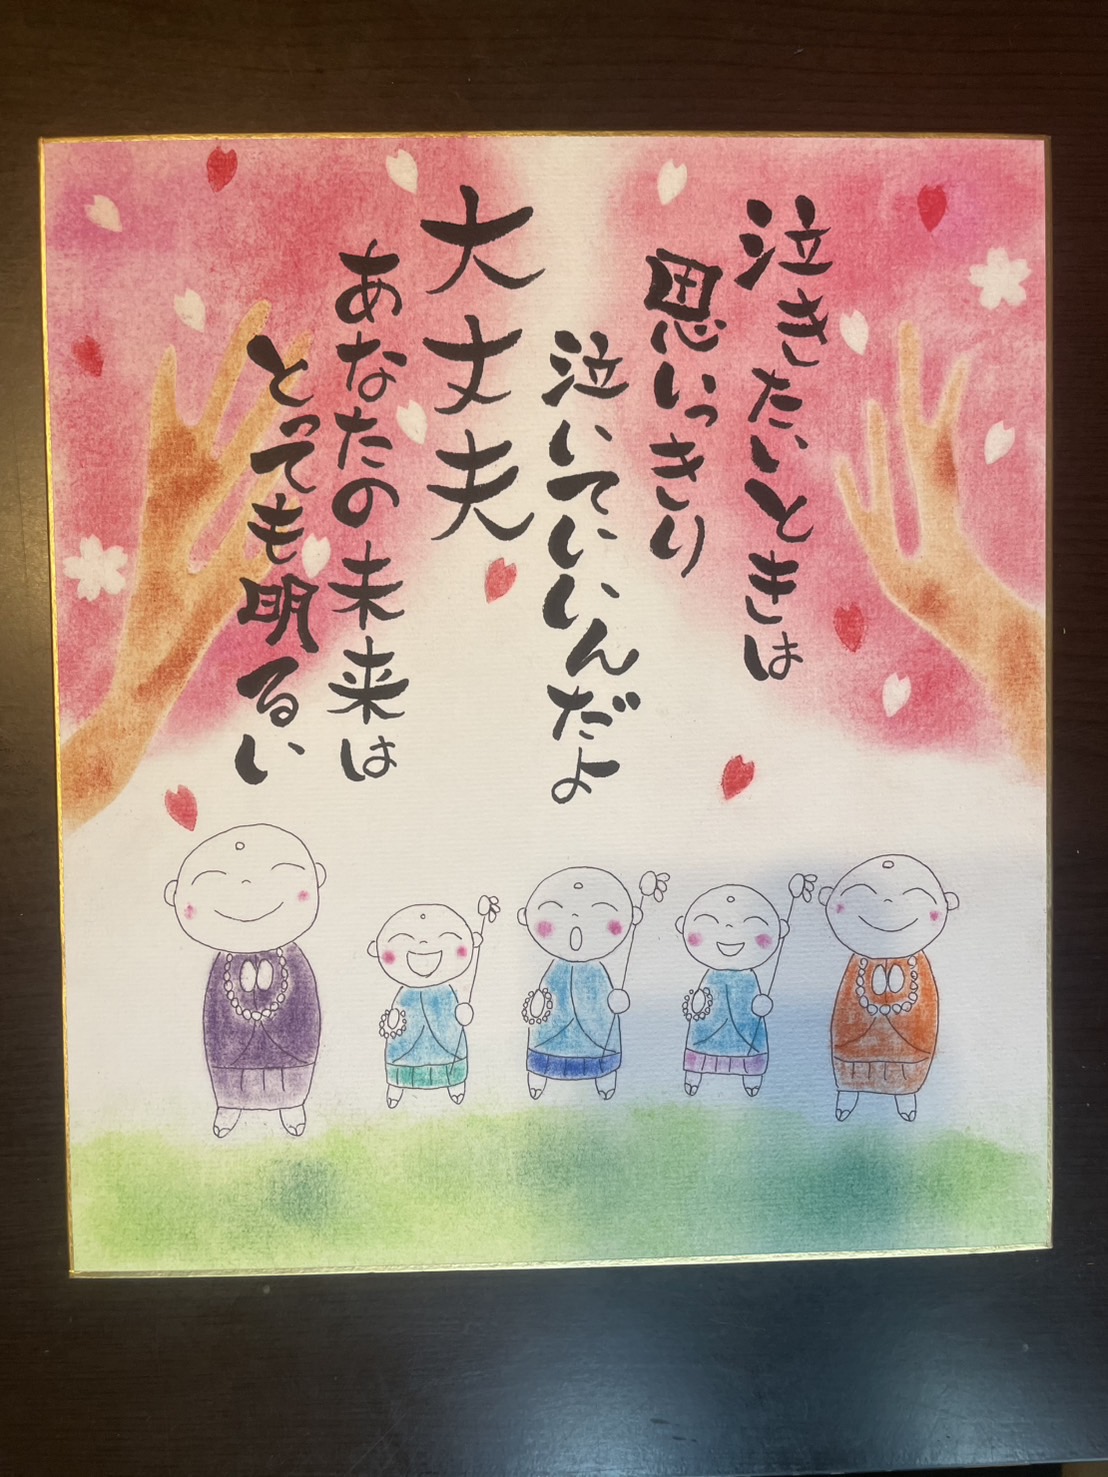 泣きたいときは
思いっきり
泣いていいんだよ
大丈夫
あなたの未来は
とっても明るい